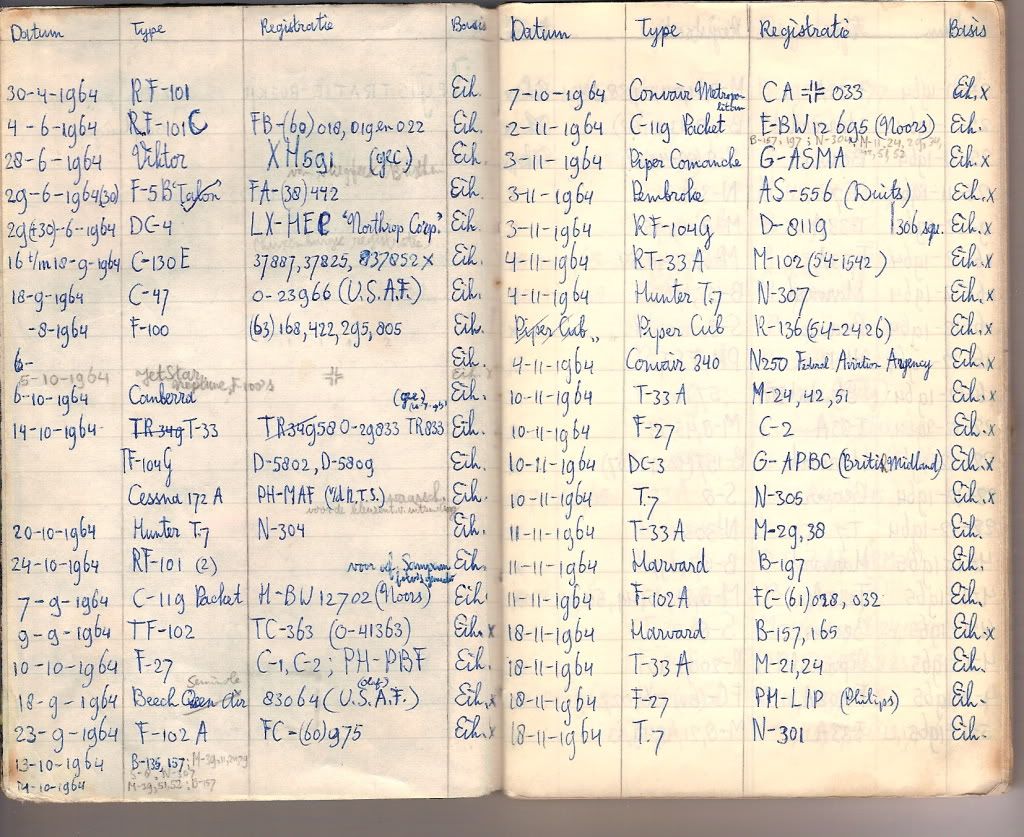 Datum Type Registratie Basis
30-4-1964 RF-101 Eih.
4-6-1964 RF-101C FB-(60)018, 019 en 022 Eih.
28-6-1964 Viktor XH591 (gec.) Eih.
29-6-1964(30) F-5B Talon FA-(38)442 Eih.
29(+30)-6-1964 DC-4 LX-HEP "Northrop Corp." Eih.
16 t/m 18-9-1964 C-130E 37887, 37825, 837852 x Eih.
18-9-1964 C-47 0-23966 (U.S.A.F.) Eih.
-8-1964 F-100 (63)168, 422, 295, 805 Eih.
6- Eih.
5-10-1964 JetStar, Neptune, F-100's Eih. x
6-10-1964 Canberra (gec.) Eih.
14-10-1964 TR349 T-33 TR34958 0-29833 TR833 Eih.
TF-104G D-5802, D-5809 Eih.
Cessna 172 A PH-MAF (v/d N.T.S.) Eih.
20-10-1964 Hunter T.7 N-304 Eih.
24-10-1964 RF-101 (2) Eih.
7-9-1964 C-119 Packet H-BW 12702 (Noors) Eih.
9-9-1964 TF-102 TC-363 (0-41363) Eih. x
10-10-1964 F-27 C-1, C-2; PH-PBF Eih.
Seminole
18-9-1964 Beech Queen Air 83064 (U.S.A.F.) Eih. x
23-9-1964 F-102 A FC-(60)975 Eih. x
13-10-1964 B-136, 157;
14-10-1964 M-39, 51, 52; B-157
Datum Type Registratie Basis
7-10-1964 Convair Metropolitan CA 033 Eih. x
2-11-1964 C-119 Packet E-BW 12695 (Noors) Eih.
3-11-1964 Piper Comanche G-ASMA Eih. x
3-11-1964 Pembroke AS-556 (Duits) Eih. x
3-11-1964 RF-104G D-8119 306 sqn. Eih.
4-11-1964 RT-33 A M-102 (54-1542) Eih. x
4-11-1964 Hunter T.7 N-307 Eih. x
Piper Cub,, Piper Cub R-136 (54-2426) Eih. x
4-11-1964 Convair 340 N250 Federal Aviation Argency Eih. x
10-11-1964 T-33 A M-24, 42, 51 Eih. x
10-11-1964 F-27 C-2 Eih. x
10-11-1964 DC-3 G-APBC (British Midland) Eih. x
10-11-1964 T.7 N-305 Eih. x
11-11-1964 T-33 A M-29, 38 Eih.
11-11-1964 Harvard B-197 Eih.
11-11-1964 F-102A FC-(61)028, 032 Eih.
18-11-1964 Harvard B-157, 165 Eih. x
18-11-1964 T-33 A M-21, 24 Eih.
18-11-1964 F-27 PH-LIP (Philips) Eih.
18-11-1964 T.7 N-301 Eih.